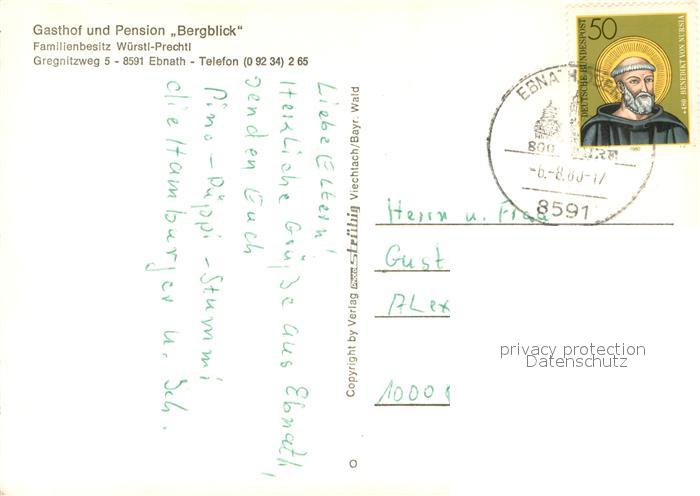 Gasthof und Pension „Bergblick“
Familienbesitz Würstl-Prechtl
Gregnitzweg 5 - 8591 Ebnath - Telefon (0 92 34) 2 65
Liebe Eltern!
Herzliche Grüße aus Ebnath,
senden Euch
Pino - Püppi - Stummi
die Hamburger u. Ich.
Copyright by Verlag Strübig Viechtach/Bayr. Wald
50
DEUTSCHE BUNDESPOST
+480 BENEDIKT VON NURSIA
1980
EBNATH
800
-6.-8.80-17
8591
Herrn u. Frau
Gust
Alex
1000
privacy protection
Datenschutz